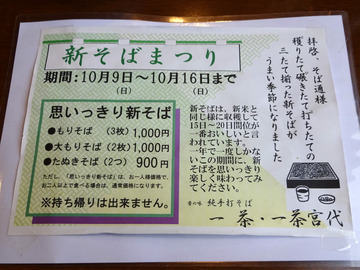 新そばまつり
期間：10月9日～10月16日まで
（日）　（日）
拝啓、そば通様
獲りたて碾きたて打ちたての
三たて揃った新そばが
うまい季節になりました
思いっきり新そば
●もりそば　（3枚）1,000円
●大もりそば（2枚）1,000円
●たぬきそば（2つ）　900円
ただし、「思いっきり新そば」は、お一人様価格で、
お二人以上で食べる場合は、通常価格になります。
※持ち帰りは出来ません。
新そばは、新米と
同じ様に収穫して
15日～20日間位が
一番おいしいと言
われています。
一年で一度しかな
いこの期間に、新
そばを思いっきり
楽しく味わってみ
てください。
純手打そば
一茶・一茶宮代